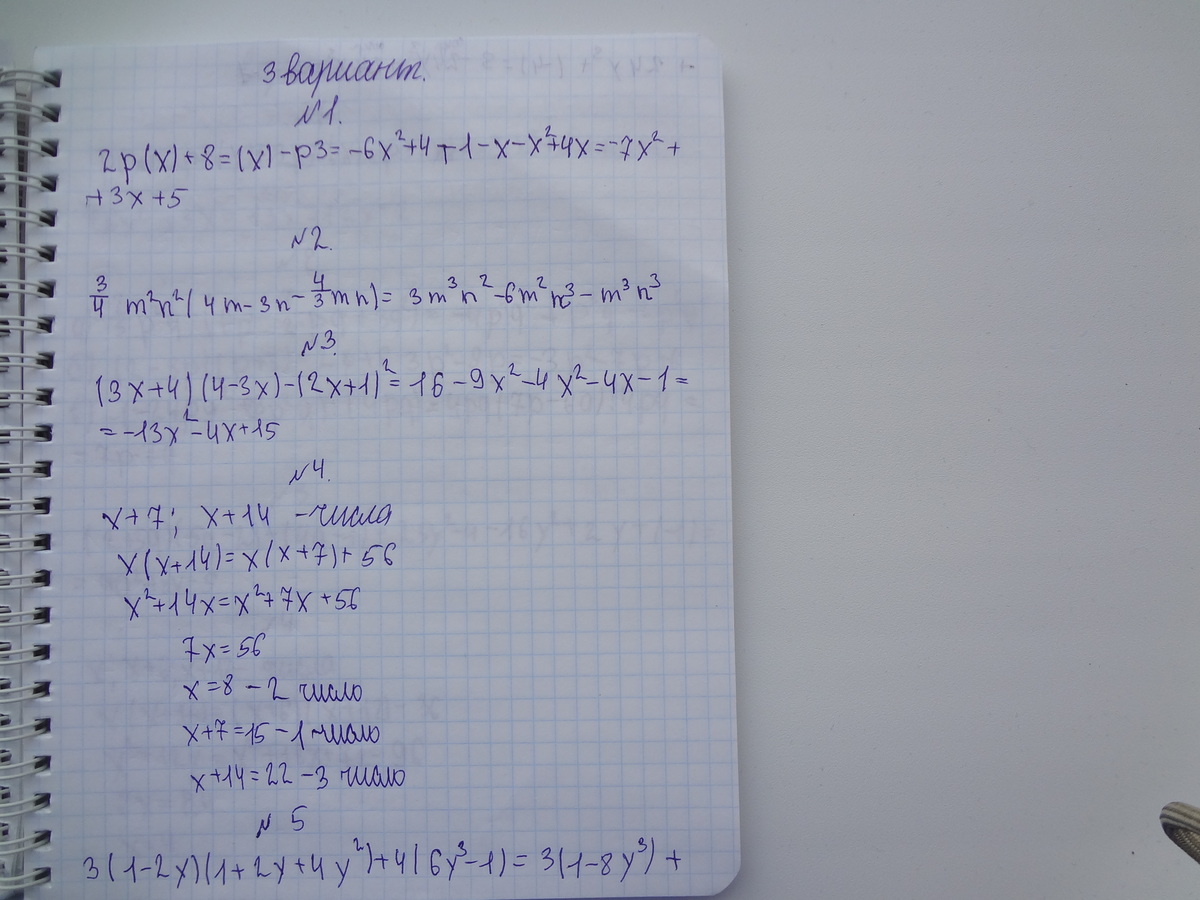 3 вариант.
№1.
2p(x)+8=(x)-p3=-6x²+4+1-x-x²+4x=-7x²+
+3x+5
№2.
3/4 m²n²(4m-3n-4/3mn)=3m³n²-6m²n³-m³n³
№3.
(3x+4)(4-3x)-(2x+1)²=16-9x²-4x²-4x-1=
=-13x²-4x+15
№4.
x+7; x+14 - числа
x(x+14)=x(x+7)+56
x²+14x=x²+7x+56
7x=56
x=8 - 2 число
x+7=15 - 1 число
x+14=22 - 3 число
№ 5
3(1-2y)(1+2y+4y²)+4(6y³-1)=3(1-8y³)+